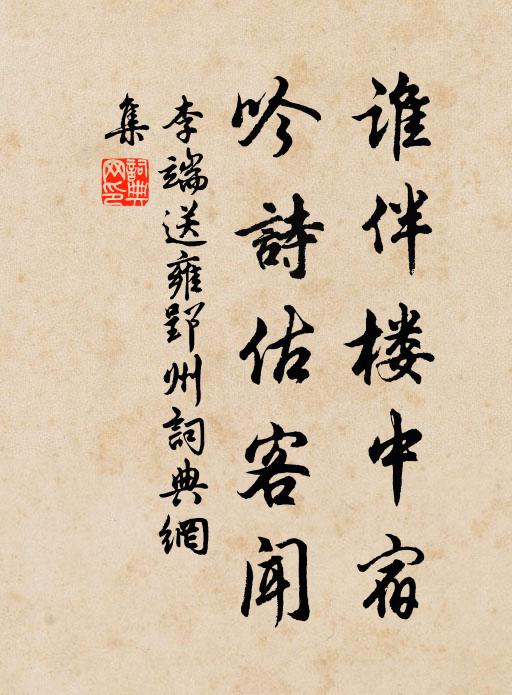 谁伴楼中宿
吟詩估客闻
李端送雍郢州詞典網
集
詞典
网印